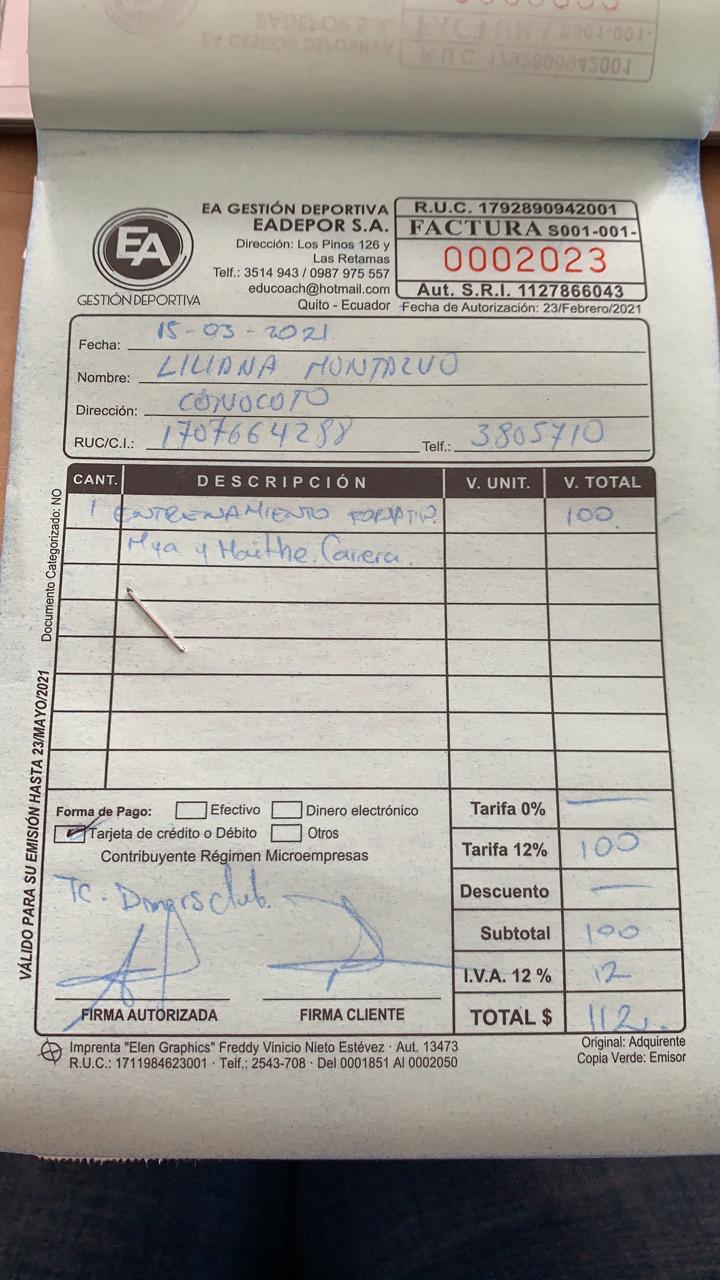 EA
GESTIÓN DEPORTIVA
EA GESTIÓN DEPORTIVA
EADEPOR S.A.
Dirección: Los Pinos 126 y
Las Retamas
Telf.: 3514 943 / 0987 975 557
educoach@hotmail.com
Quito - Ecuador
R.U.C. 1792890942001
FACTURA S001-001-
0002023
Aut. S.R.I. 1127866043
Fecha de Autorización: 23/Febrero/2021
Fecha: 15-03-2021
Nombre: LILIANA MONTALVO
Dirección: CONOCOTO
RUC/C.I.: 1707664288 Telf.: 3805710
CANT. DESCRIPCIÓN V. UNIT. V. TOTAL
1 ENTRENAMIENTO 100
Mya y Maithe Carrera
Documento Categorizado: NO
VÁLIDO PARA SU EMISIÓN HASTA 23/MAYO/2021
Forma de Pago: Efectivo Dinero electrónico
Tarjeta de crédito o Débito Otros
Contribuyente Régimen Microempresas
TC. Dinersclub.
FIRMA AUTORIZADA FIRMA CLIENTE
Tarifa 0% —
Tarifa 12% 100
Descuento —
Subtotal 100
I.V.A. 12 % 12
TOTAL $ 112,
Imprenta "Elen Graphics" Freddy Vinicio Nieto Estévez · Aut. 13473
R.U.C.: 1711984623001 · Telf.: 2543-708 · Del 0001851 Al 0002050
Original: Adquirente
Copia Verde: Emisor